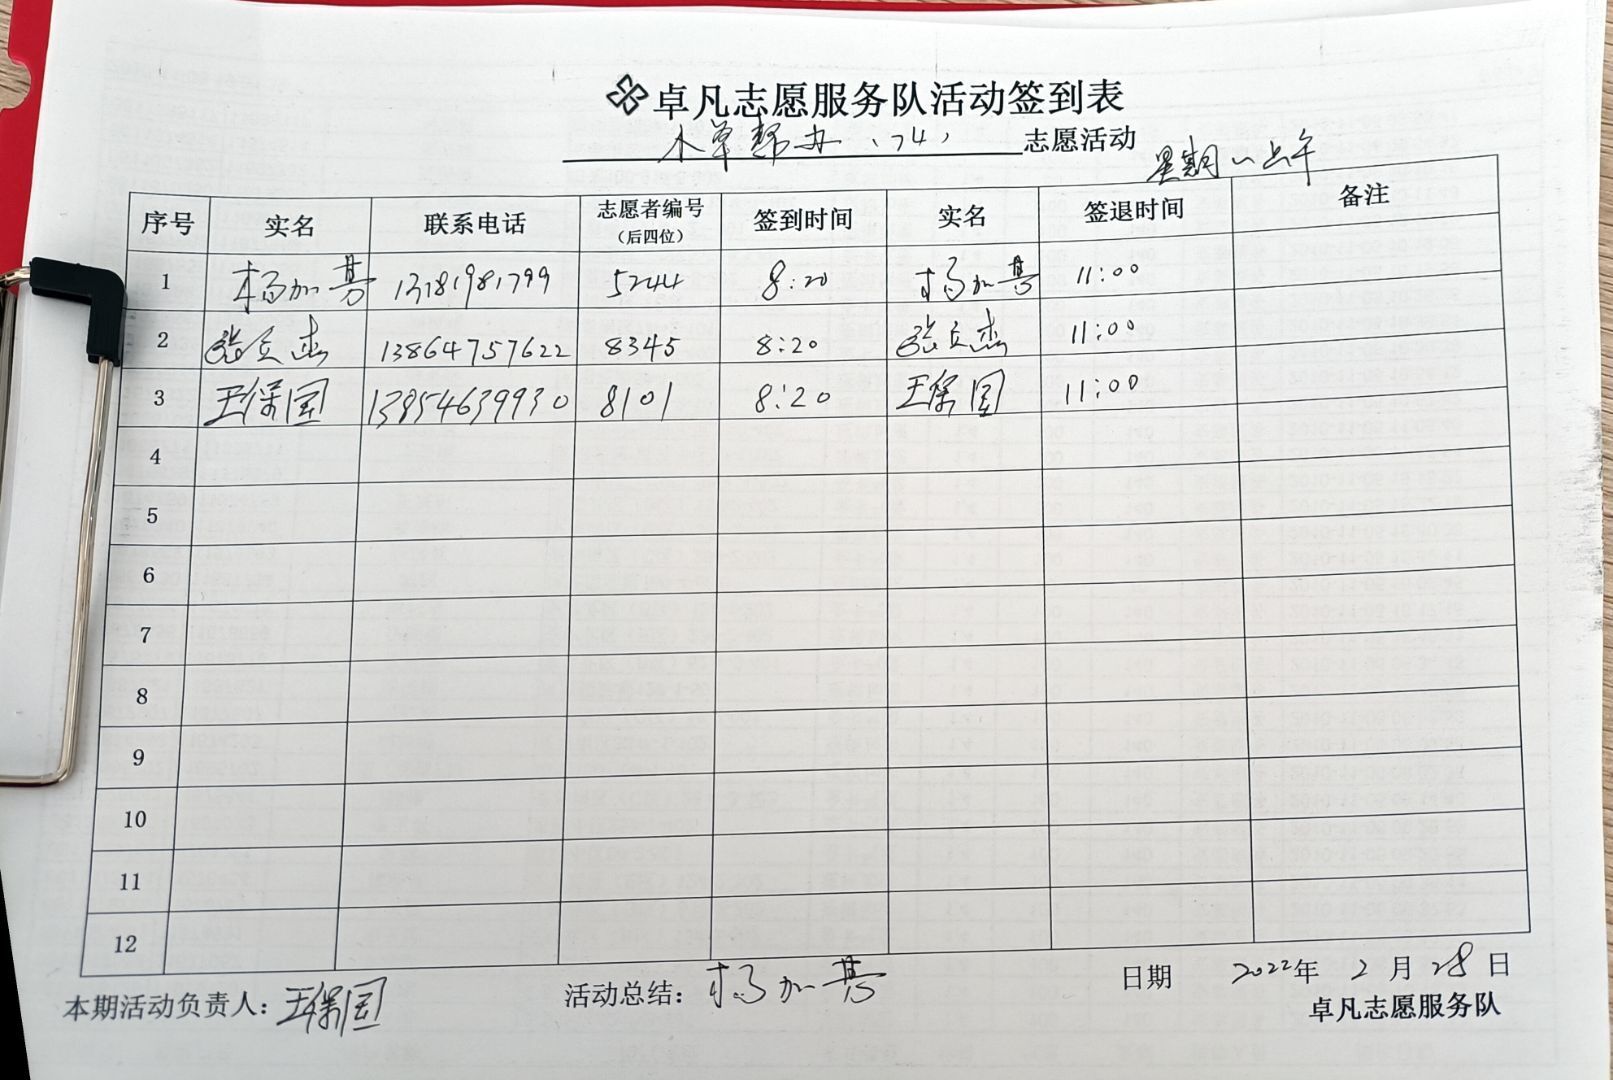 卓凡志愿服务队活动签到表
帮办（74）志愿活动
星期一上午
序号 实名 联系电话 志愿者编号（后四位） 签到时间 实名 签退时间 备注
1 杨加 13181981799 5244 8:20 杨加 11:00
2 张立杰 13864757622 8345 8:20 张立杰 11:00
3 王保国 13854639930 8101 8:20 王保国 11:00
4
5
6
7
8
9
10
11
12
本期活动负责人：王保国 活动总结：杨加 日期 2022年 2月 28日
卓凡志愿服务队